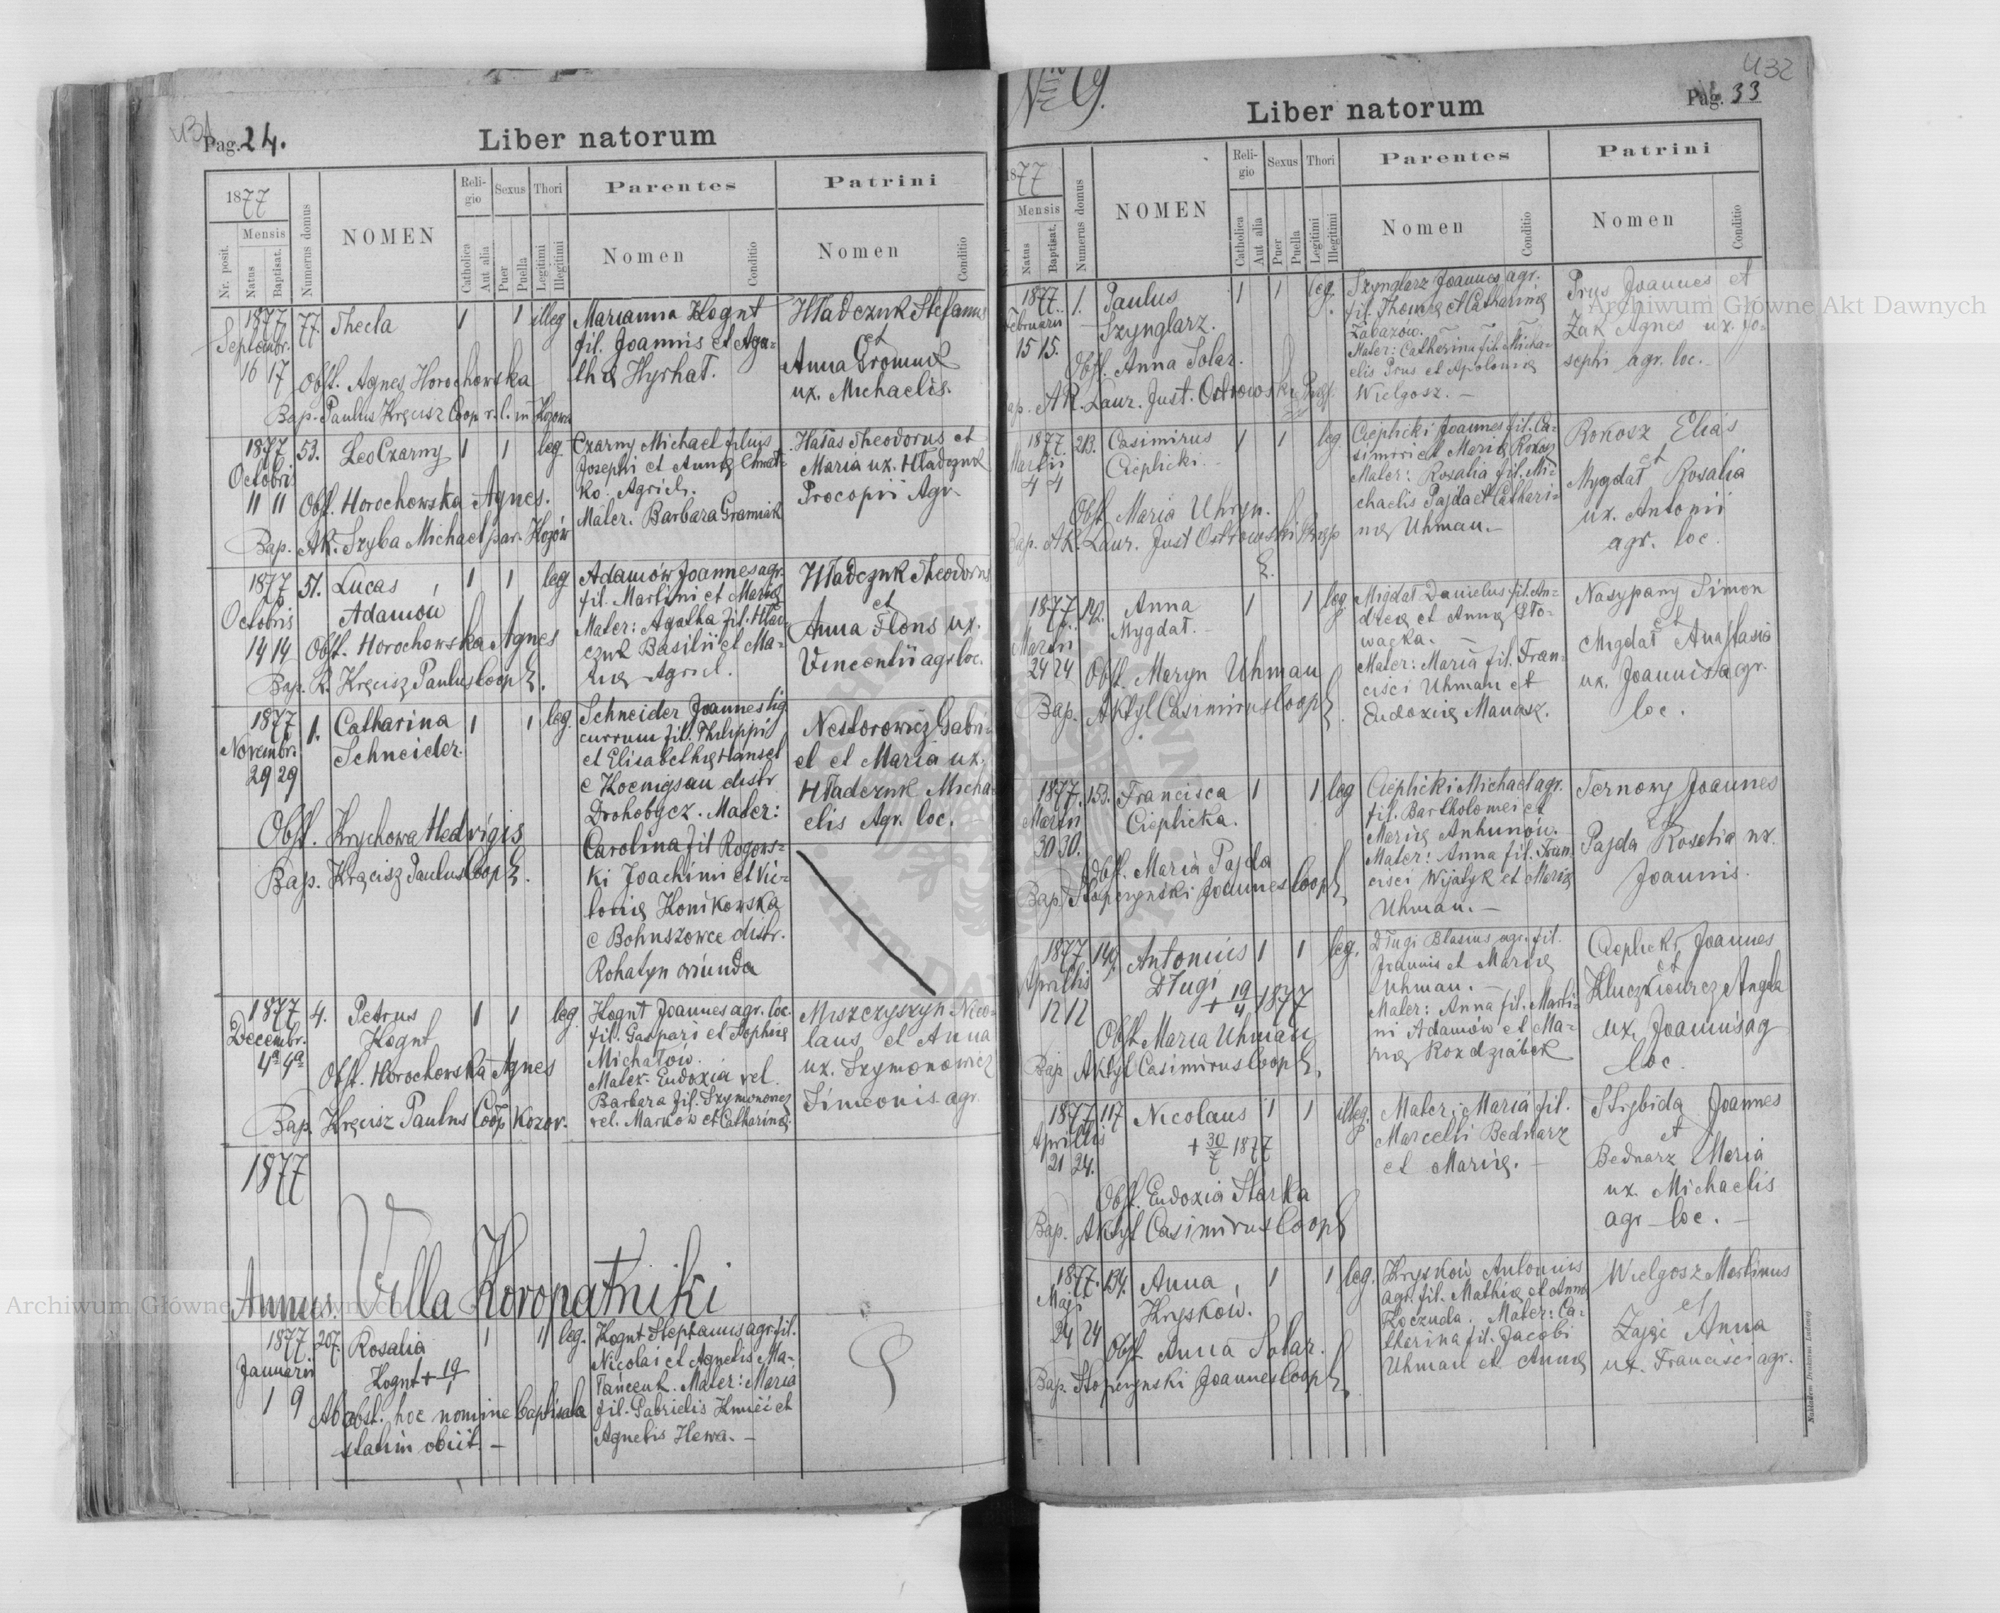 431
Pag. 24.
Liber natorum
1877
Mensis
Nr. posit.
Natus
Baptisat.
Numerus domus
NOMEN
Religio
Catholica
Aut alia
Sexus
Puer
Puella
Thori
Legitimi
Illegitimi
Parentes
Nomen
Conditio
Patrini
Nomen
Conditio
1877
Septembr.
16 17
77.
Thecla
1
1
illeg
Obst. Agnes Horochowska
Bap. Paulus Kręcisz Coop r. l. in Kozowa
Marianna Kognt
fil. Joannis et Aga-
thæ Hyrhat.
Hładczuk Stefanus
et
Anna Gromuk
ux. Michaelis.
1877
Octobris
11 11
53.
Leo Czarny
1
1
leg.
Obst. Horochowska Agnes.
Bap. AR. Szyba Michael par. Kozów
Czarny Michael filius
Josephi et Annæ
Ko. Agric.
Mater. Barbara Gramiak
Hałas Theodorus et
Maria ux. Hładczuk
Procopii Agr.
1877
Octobris
14 14
51.
Lucas
Adamów
1
1
leg
Obst. Horochowska Agnes
Bap. R. Kręcisz Paulus Coop E.
Adamów Joannes agr.
fil. Martini et Mariæ
Mater: Agatha fil. Hład-
czuk Basilii et Ma-
riæ Agric.
Hładczuk Theodorus
et
Anna Flons ux.
Vincentii agr loc.
1877
Novembr.
29 29
1.
Catharina
Schneider.
1
1
leg.
Obst. Krychowa Hedvigis
Bap. Kręcisz Paulus Coop E.
Schneider Joannes fig
currum fil. Philippi
et Elisabethæ Hansel
e Koenigsau distr.
Drohobycz. Mater:
Carolina fil Rogows-
ki Joachimi et Vic-
toriæ Konikowska
e Bohuszowce distr.
Rohatyn oriunda
Nestorowicz Gabri-
el et Maria ux.
Hładczuk Micha-
elis Agr. loc.
1877
Decembr.
4ª 9ª
4.
Petrus
Kognt
1
1
leg.
Obst. Horochowska Agnes
Bap. Kręcisz Paulus Coop Kozow.
Kognt Joannes agr. loc.
fil. Gaspari et Sophiæ
Michałow.
Mater. Eudoxia vel.
Barbara fil. Szymonowicz
vel. Markow et Catharinæ.
Miszczyszyn Nico-
laus et Anna
ux. Szymonowicz
Simeonis agr.
1877
Annus. Villa Koropatniki
1877
Januarii
1 9
207.
Rosalia
Kognt + 19/1
1
1
leg.
Ab obst. hoc nomine baptisata
statim obiit. —
Kognt Stephanus agr. fil.
Nicolai et Agnetis Ma-
łańczuk. Mater: Maria
fil. Gabrielis Kmieć et
Agnetis Hewa. —
432
Pag. 33
Liber natorum
1877
Mensis
Natus
Baptisat.
Numerus domus
NOMEN
Religio
Catholica
Aut alia
Sexus
Puer
Puella
Thori
Legitimi
Illegitimi
Parentes
Nomen
Conditio
Patrini
Nomen
Conditio
1877.
Februarii
15 15.
1.
Paulus
Szynglarz.
1
1
leg.
Obst. Anna Solar.
Bap. AR. Laur. Just. Ostrowski Exp.
Szynglarz Joannes agr.
fil. Thomæ et Catharinæ
Zabazow.
Mater: Catherina fil. Micha-
elis Prus et Apoloniæ
Wielgosz. —
Prus Joannes et
Żak Agnes ux. Jo-
sephi agr. loc. —
1877
Martii
4 4
213.
Casimirus
Cieplicki. —
1
1
leg.
Obst. Maria Uhryn.
Bap. AR. Laur. Just Ostrowski Exp
E.
Cieplicki Joannes fil. Ca-
simiri et Mariæ Rokosz
Mater: Rosalia fil. Mi-
chaelis Pajda et Cathari-
næ Uhman. —
Rokosz Elias
et
Mygdał Rosalia
ux. Antonii
agr. loc.
1877.
Martii
24 24
142.
Anna
Mygdał. —
1
1
leg
Obst. Maryn Uhman
Bap. Aktyl Casimirus Coop E.
Migdał Danielus fil. An-
dreæ et Annæ Sło-
wacka. —
Mater: Maria fil. Fran-
cisci Uhman et
Eudoxiæ Manasz.
Nasypany Simon
et
Migdał Anastasia
ux. Joannis agr.
loc.
1877.
Martii
30 30.
153.
Francisca
Cieplicka.
1
1
leg
Obst. Maria Pajda
Bap. Stoperzynski Joannes Coop E
Cieplicki Michael agr.
fil. Bartholomei et
Mariæ Anhunów.
Mater: Anna fil. Fran-
cisci Wijatyk et Mariæ
Uhman. —
Ternowy Joannes
et
Pajda Rosalia ux.
Joannis.
1877
Aprilis
12 12
149.
Antonius
Długi
+ 19/4 1877
1
1
leg.
Obst. Maria Uhman
Bap Aktyl Casimirus Coop E.
Długi Blasius agr. fil.
Joannis et Mariæ
Uhman. —
Mater: Anna fil. Marti-
ni Adamów et Ma-
riæ Rozdziabek
Cieplicki Joannes
et
Kluczkiewicz Angela
ux. Joannis ag
loc.
1877
Aprilis
21 24.
117
Nicolaus
+ 30/7 1877
1
1
illeg.
Obst. Eudoxia Starka
Bap. Aktyl Casimirus Coop E
Mater: Maria fil.
Marcelli Bednarz
et Mariæ. —
Strybida Joannes
et
Bednarz Maria
ux. Michaelis
agr — loc. —
1877.
Maji
24 24
134.
Anna
Kryskow.
1
1
leg.
Obst Anna Solar.
Bap. Stoperzynski Joannes Coop E
Kryskow Antonius
agr. fil. Mathiæ et Annæ
Koczuda. Mater: Ca-
therina fil. Jacobi
Uhman et Annæ
Wielgosz Martinus
et
Zając Anna
ux. Francisci agr.
Archiwum Główne Akt Dawnych
Archiwum Główne Akt Dawnych